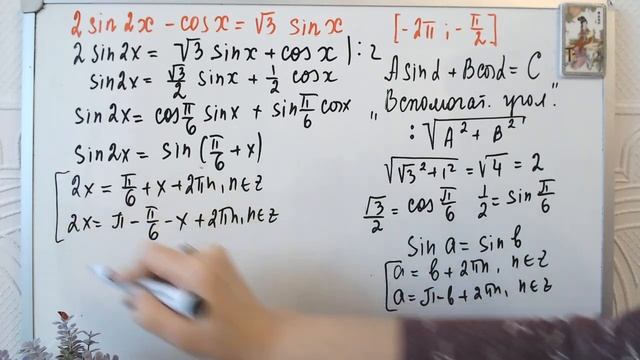 2 sin 2x - cos x = √3 sin x
2 sin 2x = √3 sin x + cos x | : 2
sin 2x = √3/2 sin x + 1/2 cos x
sin 2x = cos π/6 sin x + sin π/6 cos x
sin 2x = sin (π/6 + x)
[ 2x = π/6 + x + 2πn, n∈Z
2x = π - π/6 - x + 2πn, n∈Z
[-2π ; -π/2]
A sin α + B cos α = C
"Вспомогат. угол"
: √(A² + B²)
√(√3² + 1²) = √4 = 2
√3/2 = cos π/6 1/2 = sin π/6
sin a = sin b
[ a = b + 2πn, n∈Z
a = π - b + 2πn, n∈Z